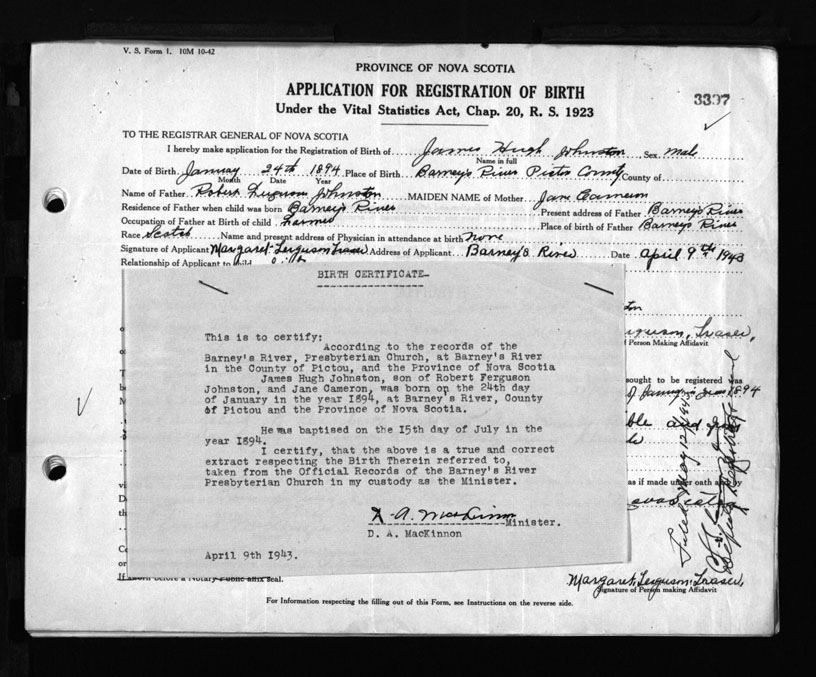 V. S. Form 1. 10M 10-42
PROVINCE OF NOVA SCOTIA
APPLICATION FOR REGISTRATION OF BIRTH
3397
Under the Vital Statistics Act, Chap. 20, R. S. 1923
TO THE REGISTRAR GENERAL OF NOVA SCOTIA
I hereby make application for the Registration of Birth of James Hugh Johnston Sex male
Name in full
Date of Birth January 24th 1894 Place of Birth Barney's River Pictou County County of
Month Date Year
Name of Father Robert Ferguson Johnston MAIDEN NAME of Mother Jane Cameron
Residence of Father when child was born Barney's River Present address of Father Barney's River
Occupation of Father at Birth of child Farmer Place of birth of Father Barney's River
Race Scotch Name and present address of Physician in attendance at birth None
Signature of Applicant Margaret Ferguson Fraser Address of Applicant Barney's River Date April 9th 1943
Relationship of Applicant to child
BIRTH CERTIFICATE-
This is to certify:
According to the records of the
Barney's River, Presbyterian Church, at Barney's River
in the County of Pictou, and the Province of Nova Scotia
James Hugh Johnston, son of Robert Ferguson
Johnston, and Jane Cameron, was born on the 24th day
of January in the year I894, at Barney's River, County
of Pictou and the Province of Nova Scotia.
He was baptised on the I5th day of July in the
year I894.
I certify, that the above is a true and correct
extract respecting the Birth Therein referred to,
taken from the Official Records of the Barney's River
Presbyterian Church in my custody as the Minister.
D. A. MacKinnon Minister.
D. A. MacKinnon
April 9th I943.
Ferguson, Fraser,
f Person Making Affidavit
sought to be registered was
1894
as if made under oath and by
Nova Scotia
Filed May 12/1943
Deputy Registrar General
If sworn before a Notary Public affix seal.
Margaret, Ferguson, Fraser,
Signature of Person making Affidavit
For Information respecting the filling out of this Form, see Instructions on the reverse side.